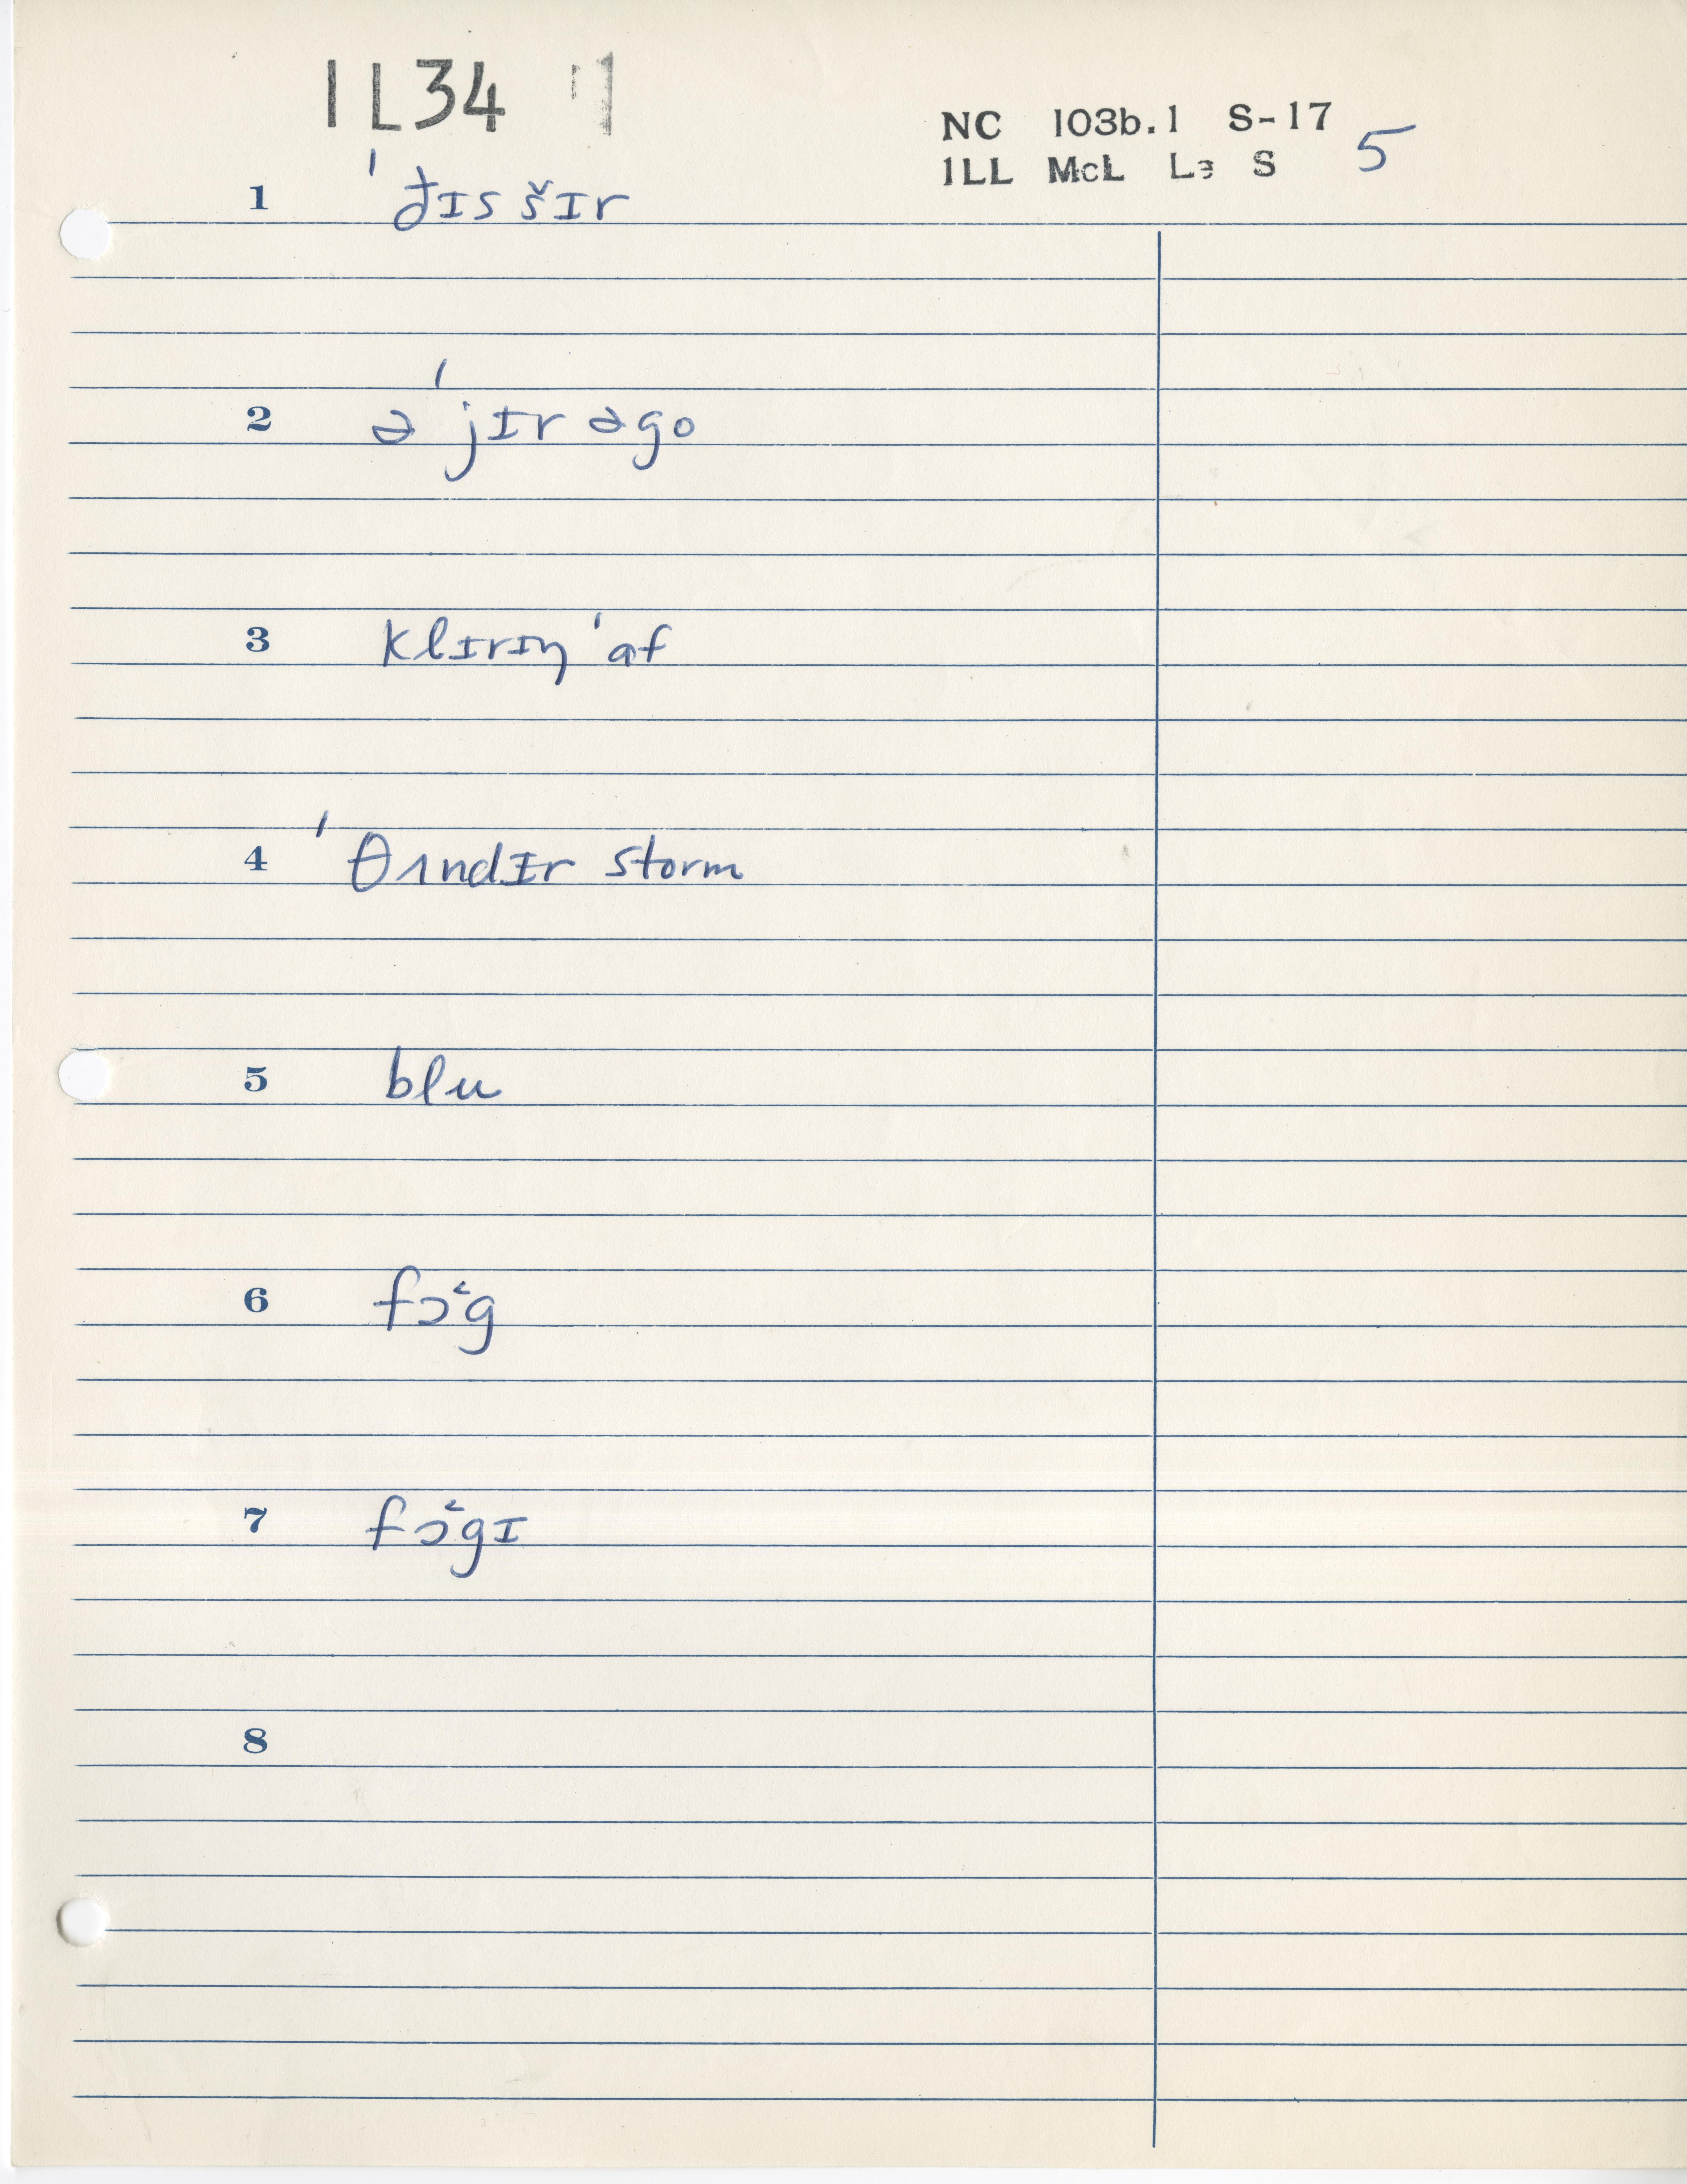 1L34 1
NC 103b.1 S-17 5
1LL McL L3 S
1 ˈðɪsšɪr
2 əˈjɪr əgo
3 klɪrɪŋ ˈaf
4 ˈθʌndɪr storm
5 blu
6 fɔ˂g
7 fɔ˂gɪ
8